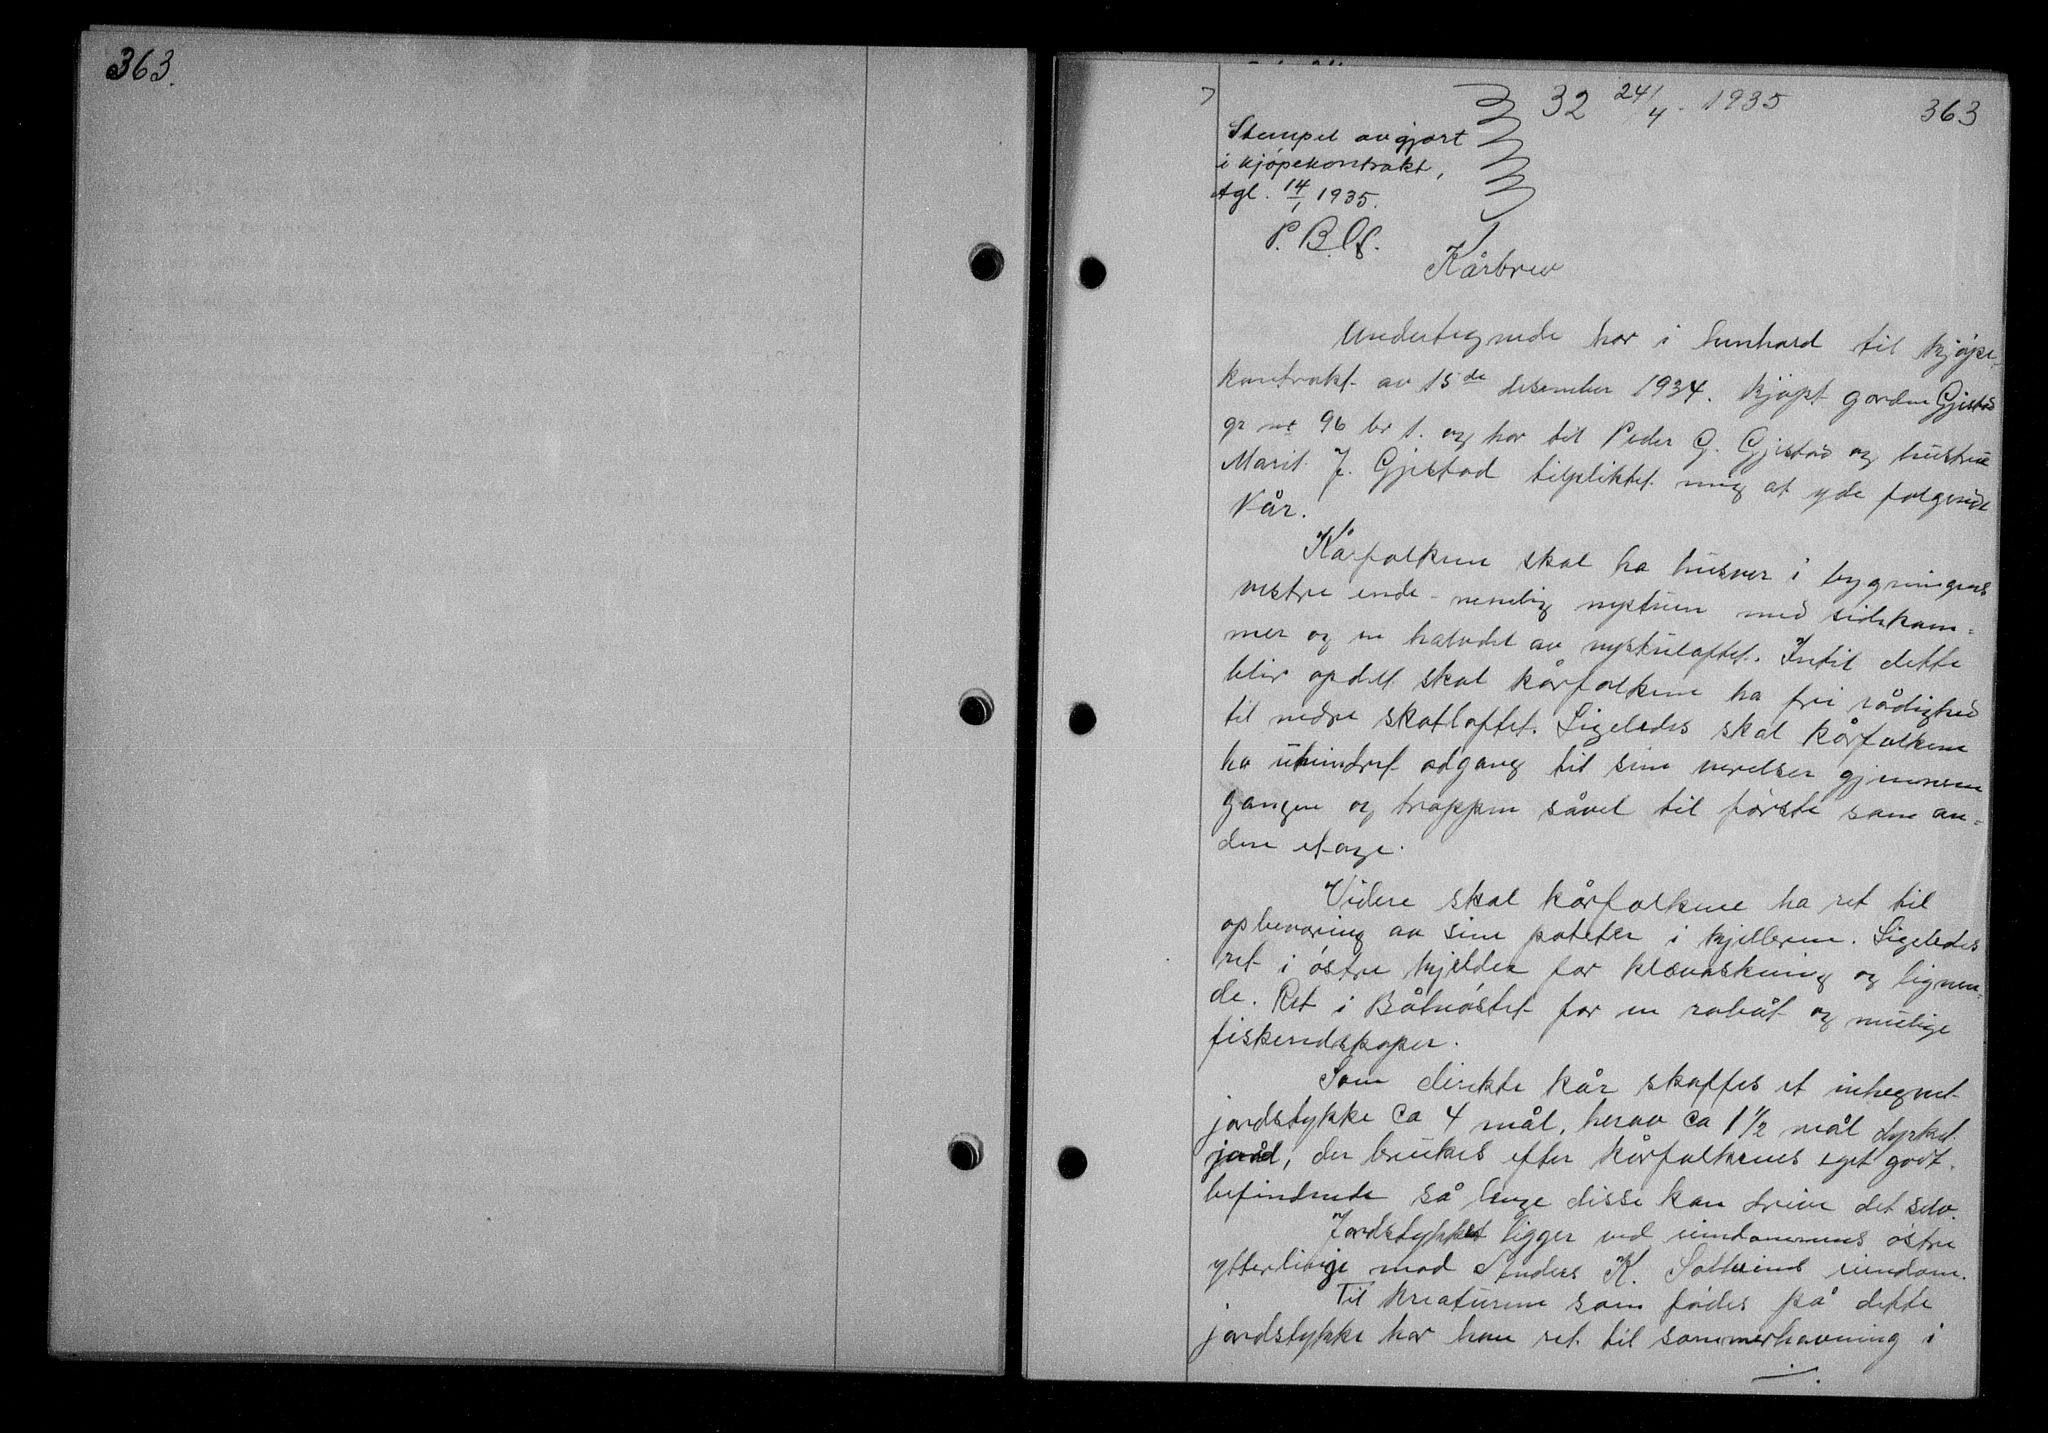 363.
32 24/4 1935
363
Stempel avgjort
i kjøpekontrakt,
tgl. 14/1 1935.
P. B.
Kårbrev
Undertegnede har i henhold til kjøpe-
kontrakt av 15de desember 1934. kjøpt garden Gjistad
gr nr 96 br 1. og har til Peder G. Gjistad og hustrue
Marit J. Gjistad tilpliktet mig at yde følgende
kår.
Kåfolkene skal ha husver i bygningens
vestre ende - nemlig nystuen med sidekam=
mer og en halvdel av nystuloftet. Intil dette
blir opdelt skal kårfolkene ha fri rådighed
til nedre skotloftet. Ligeledes skal kårfolkene
ha uhindret adgang til sine verelser gjennem
gangen og trappen såvel til første som an=
dere etage.
Videre skal kårfolkene ha ret til
opbevaring av sine poteter i kjelleren. Ligeledes
ret i østre kjelder for klævaskning og lignen=
de. Ret i Båtnøstet for en robåt og mulige
fiskeredskaper.
Som direkte kår skaffes et inhegnet
jordstykke ca 4 mål, herav ca 1 1/2 mål dyrket
jord, der brukes efter kårfolkenes eget godt-
befindende så lenge disse kan dreive det selv.
Jordstykket ligger ved eiendommens østre
ytterlinje mod Anders K. eiendom.
Til kreaturene som fødes på dette
jordstykke har han ret til sommerhavning i
./.